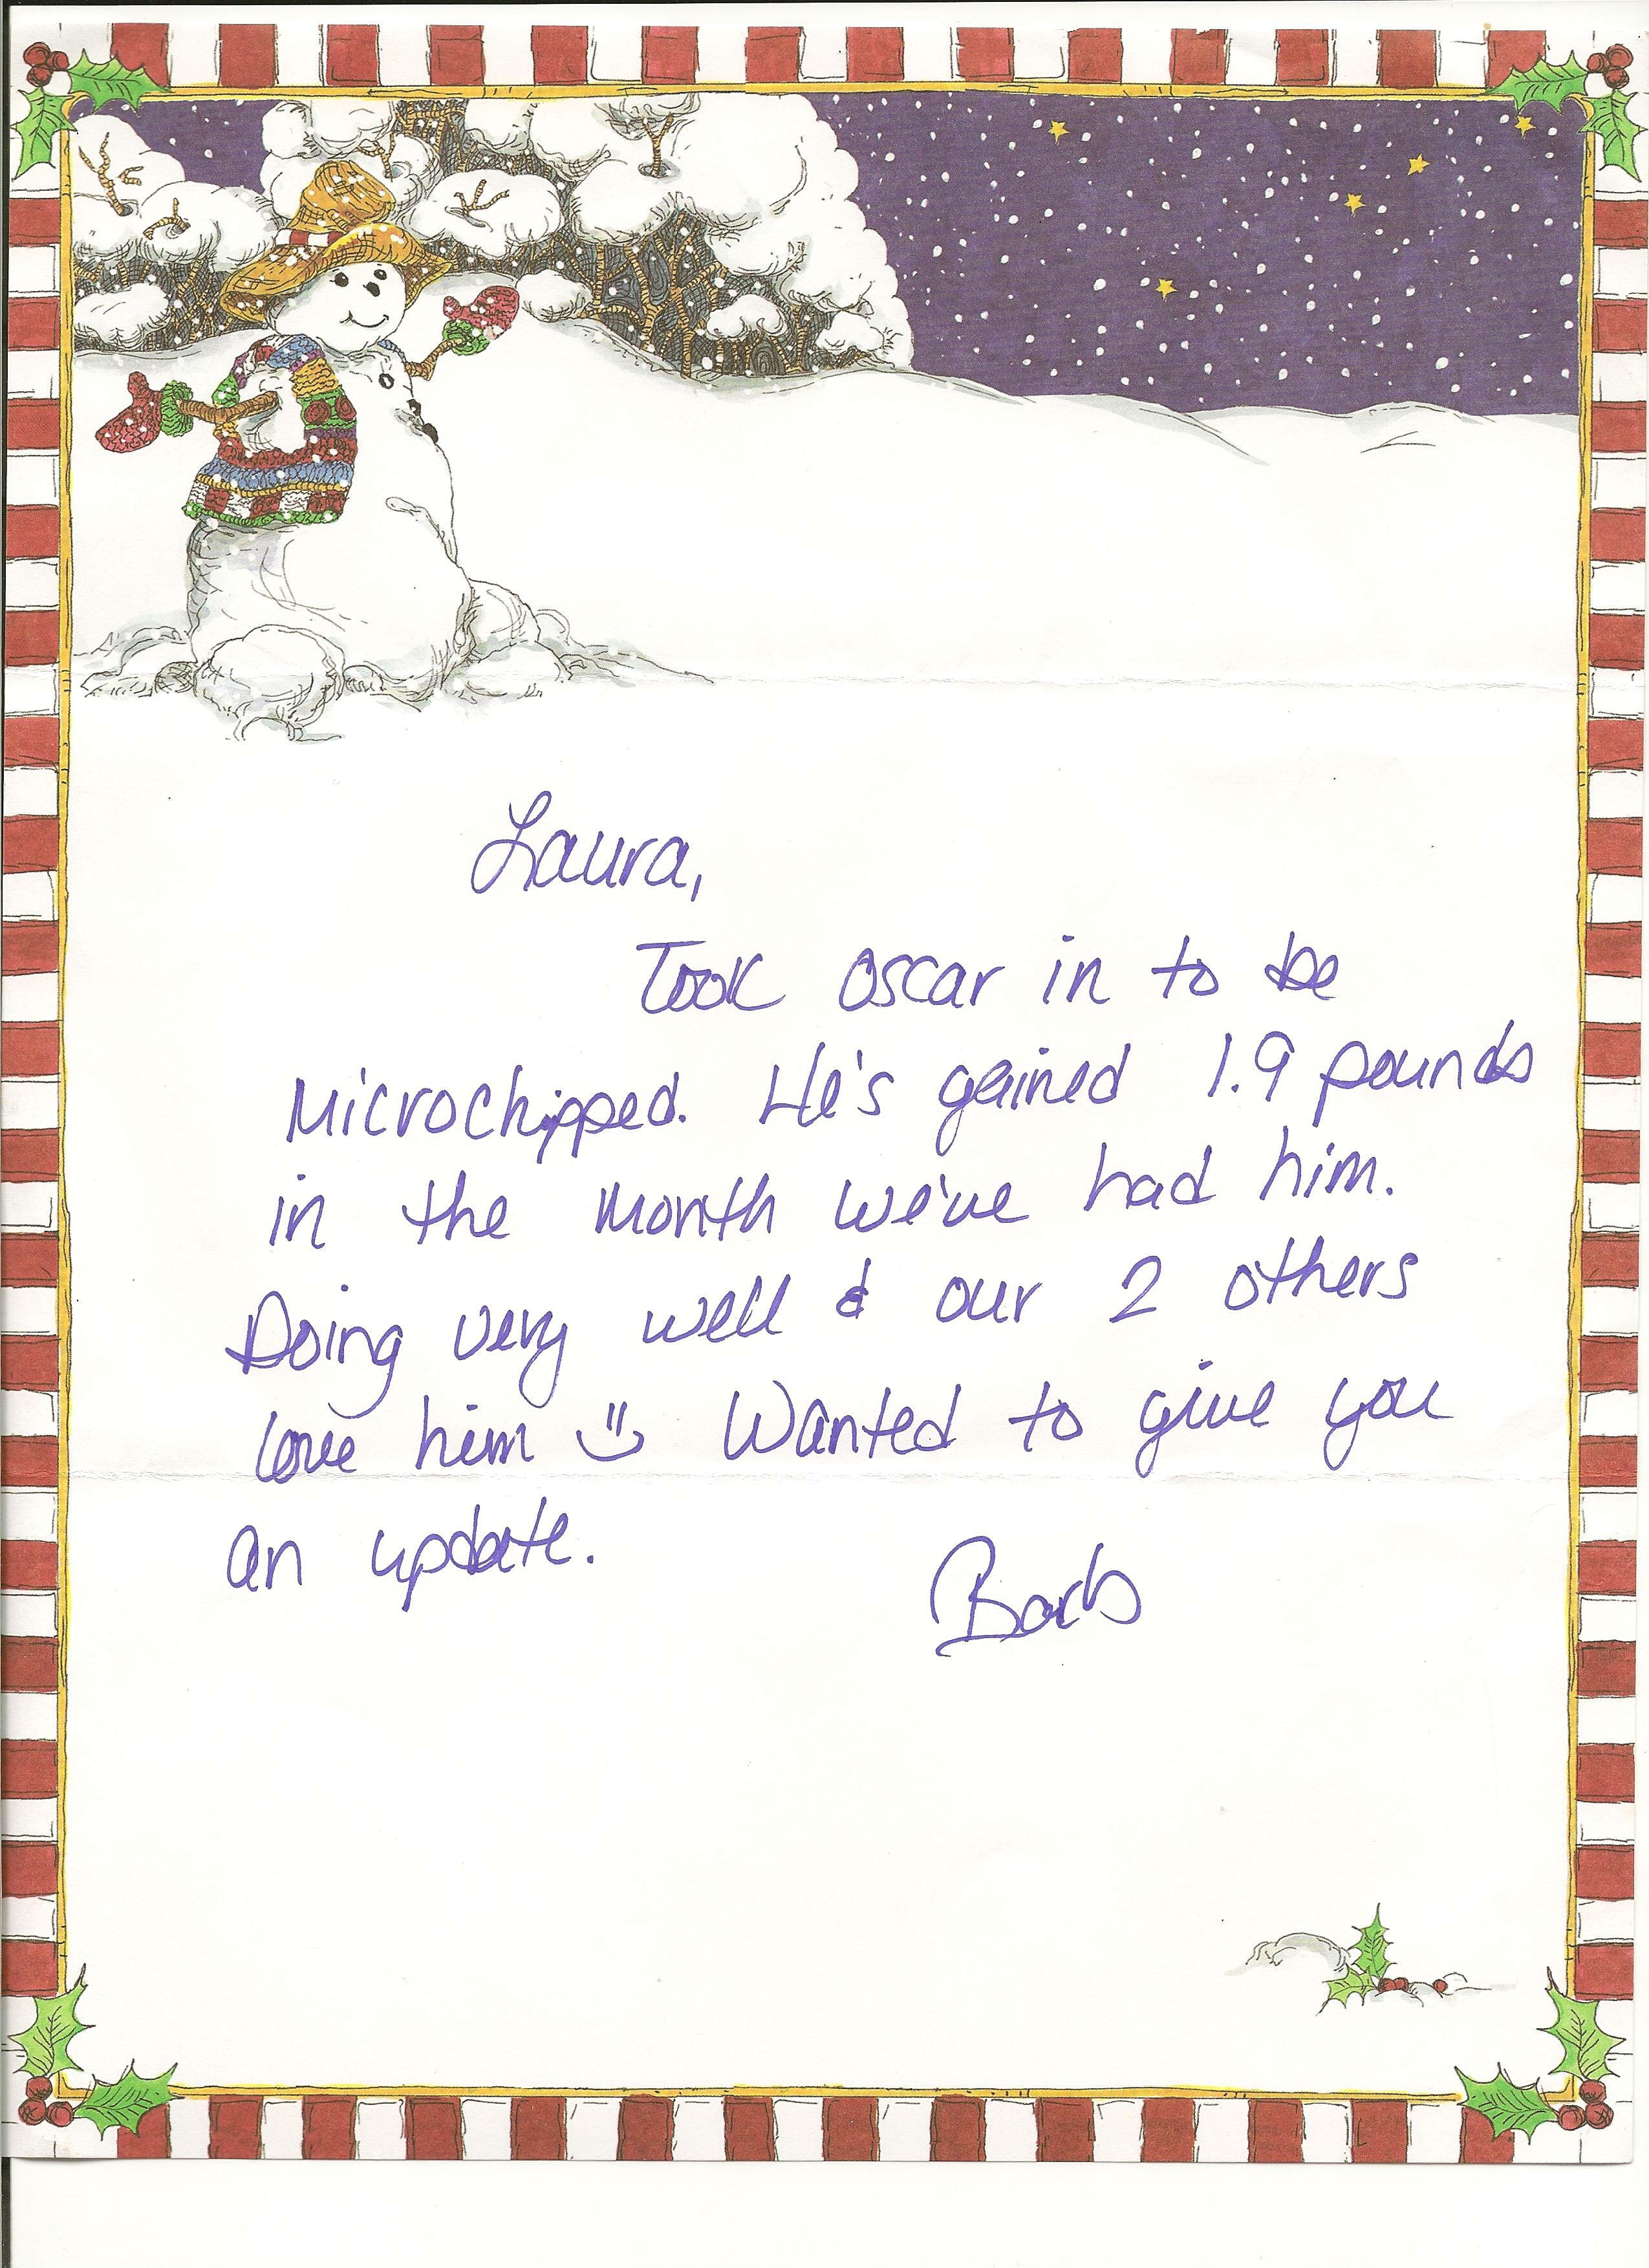 Laura,
Took Oscar in to be
Microchipped. He's gained 1.9 pounds
in the month we've had him.
Doing very well & our 2 others
love him :) Wanted to give you
an update.
Barb